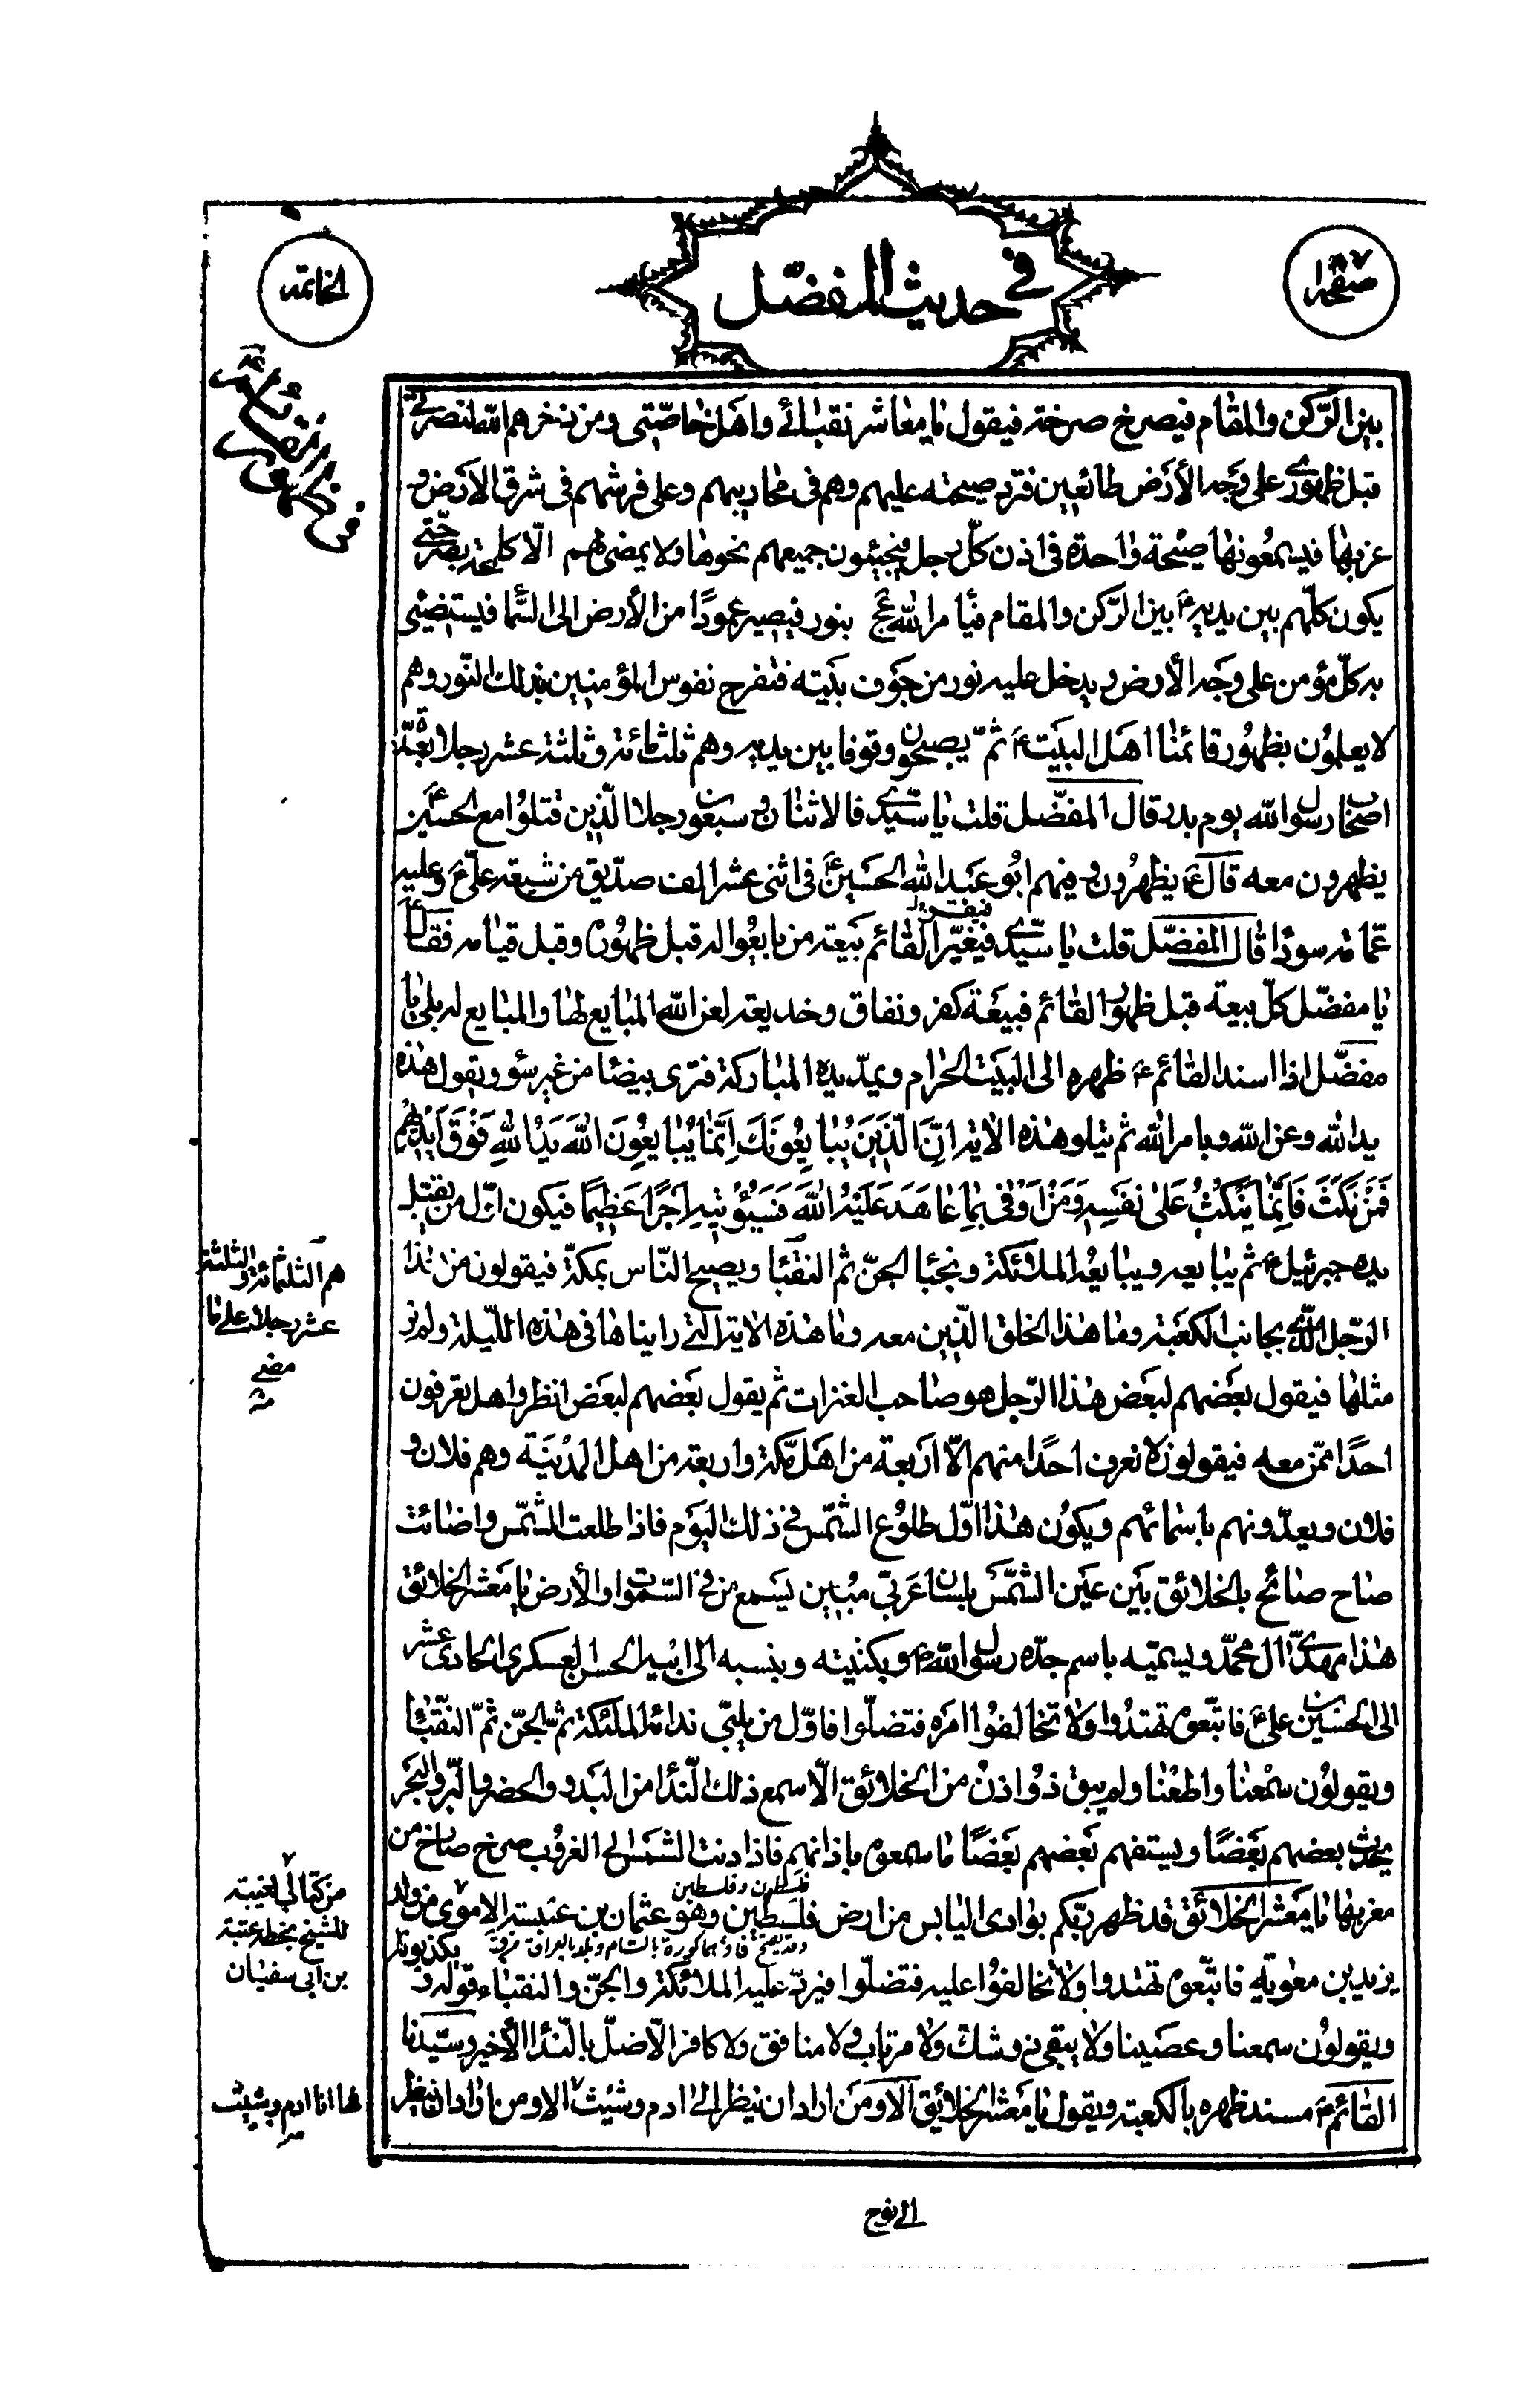 في حديث المفضّل
الخاتمة
بين الرّكن والمقام فيصرخ صرخة فيقول يا معاشر نقبائي واهل خاصّتي ومن ذخرهم الله لنصرتي
قبل ظهوري على وجه الأرض طائعين فترد صيحته عليهم وهم في محاريبهم وعلى فرشهم في شرق الأرض و
غربها فيسمعونها صيحة واحدة في اذن كلّ رجل فيجيئون جميعهم نحوها ولا يمضي لهم الّا كلمحة بصر حتّى
يكون كلّهم بين يديه ع بين الرّكن والمقام فيأمر الله عج بنور فيصير عمودًا من الأرض الى السّما فيستضيئ
به كلّ مؤمن على وجه الأرض ويدخل عليه نور من جوف بيته فتفرح نفوس المؤمنين بذلك النّور وهم
لا يعلمون بظهور قائمنا اهل البيت ع ثمّ يصبحون وقوفا بين يديه وهم ثلثمائة وثلثة عشر رجلا بعدّة
اصحاب رسول الله يوم بدر قال المفضّل قلت يا سيّدي فالاثنان وسبعون رجلا الّذين قتلوا مع الحسين ع
يظهرون معه قال ع يظهرون وفيهم ابو عبد الله الحسين ع في اثني عشر الف صدّيق من شيعة عليّ ع وعليه
عمامة سودا قال المفضّل قلت يا سيّدي فيغيّر القائم بيعة من بايعوا له قبل ظهوره وقبل قيامه فقال ع
يا مفضّل كلّ بيعة قبل ظهور القائم فبيعة كفر ونفاق وخديعة لعن الله المبايع لها والمبايع له بلى يا
مفضّل اذا اسند القائم ع ظهره الى البيت الحرام ويمدّ يده المباركة فترى بيضا من غير سؤ ويقول هذه
يد الله وعن الله وبامر الله ثم يتلو هذه الاية انّ الّذين يبايعونك انّما يبايعون الله يد الله فوق ايديهم
فمن نكث فانّما ينكث على نفسه ومن اوفى بما عاهد عليه الله فسيؤتيه اجرًا عظيما فيكون اوّل من يقبّل
يده جبرئيل ع ثم يبايعه ويبايعه الملائكة ونجبا الجنّ ثم النقبا ويصبح النّاس بمكّة فيقولون من هذا
الرّجل الّذي بجانب الكعبة وما هذا الخلق الّذين معه وما هذه الاية الّتي رايناها في هذه اللّيلة ولم نر
مثلها فيقول بعضهم لبعض هذا الرّجل هو صاحب العنزات ثم يقول بعضهم لبعض انظروا هل تعرفون
احدًا ممّن معه فيقولون لا نعرف احدًا منهم الّا اربعة من اهل مكّة واربعة من اهل المدينة وهم فلان و
فلان ويعدّونهم باسمائهم ويكون هذا اوّل طلوع الشّمس في ذلك اليوم فاذا طلعت الشّمس واضائت
صاح صائح بالخلائق بين عين الشّمس بلسان عربيّ مبين يسمع من في السّموات والأرض يا معشر الخلائق
هذا مهديّ ال محمّد ويسمّيه باسم جدّه رسول الله ص ويكنّيه وينسبه الى ابيه الحسن العسكري الحادي عشر
الى الحسين بن علي ع فاتّبعوه تهتدوا ولا تخالفوا امره فتضلّوا فاوّل من يلبّي ندائه الملئكة ثم الجنّ ثمّ النقبا
ويقولون سمعنا واطعنا ولم يبق ذو اذن من الخلائق الّا سمع ذلك النّدا من البدو والحضر والبرّ والبحر
يحدّث بعضهم بعضًا ويستفهم بعضهم بعضًا ما سمعوه باذانهم فاذا دنت الشمس الى الغروب صرخ صارخ من
مغربها يا معشر الخلائق قد ظهر ربّكم بوادي اليابس من ارض فلسطين وهو عثمان بن عنبسة الاموي من ولد
يزيد بن معوية فاتّبعوه تهتدوا ولا تخالفوا عليه فتضلّوا فيردّ عليه الملائكة والجنّ والنقباء قوله و يكذبونه
ويقولون سمعنا وعصينا ولا يبقى ذو شكّ ولا مرتاب ولا منافق ولا كافر الّا ضلّ بالنّدا الأخير وسيّدنا
القائم ع مسند ظهره بالكعبة ويقول يا معشر الخلائق الا ومن اراد ان ينظر الى ادم وشيث الا ومن اراد ان ينظر
هم الثلثمائة والثلثة
عشر رجلا على ما
مضى
من كتاب الغيبة
للشيخ بخطه عتبة
بن ابي سفيان
ها انا ادم وشيث
الى نوح